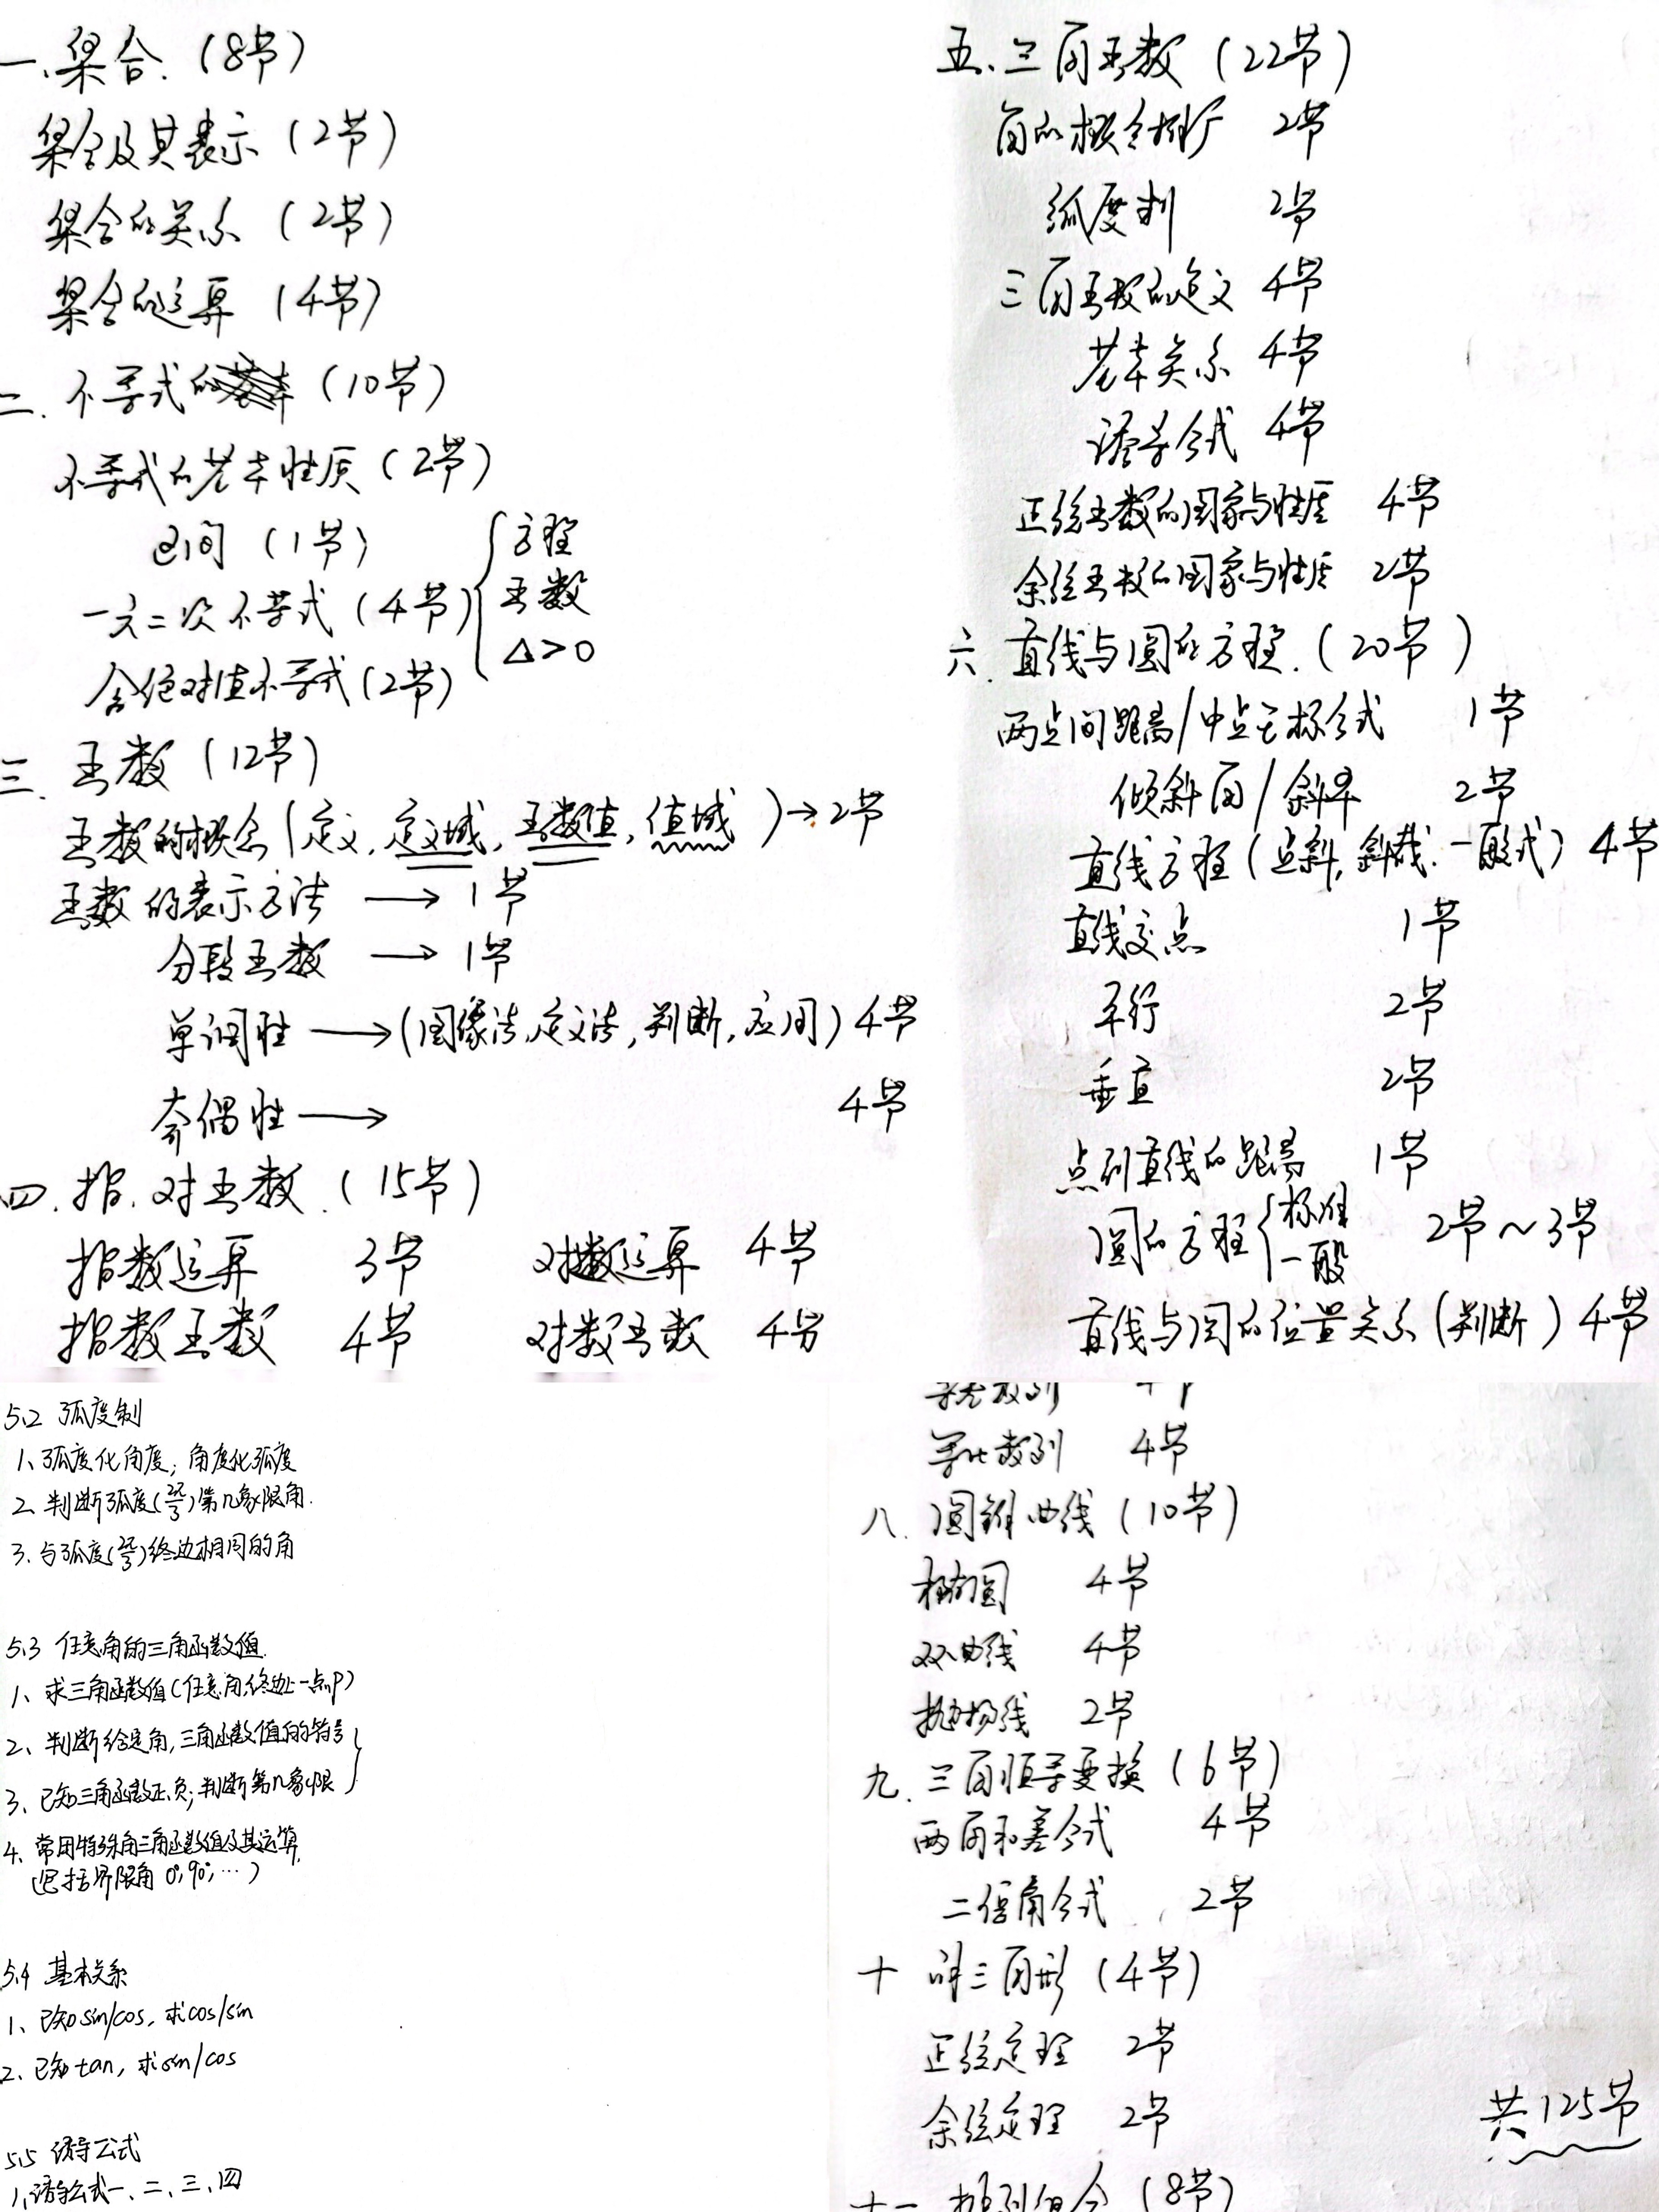 一、集合.（8节）
集合及其表示（2节）
集合的关系（2节）
集合的运算（4节）
二. 不等式的（10节）
不等式的基本性质（2节）
区间（1节）
一元二次不等式（4节）{方程
函数
△>0
含绝对值不等式（2节）
三. 函数（12节）
函数的概念（定义, 定义域, 函数值, 值域）→2节
函数的表示方法 → 1节
分段函数 → 1节
单调性 →（图像法,定义法,判断,应用）4节
奇偶性 → 4节
四. 指.对函数.（15节）
指数运算 3节 对数运算 4节
指数函数 4节 对数函数 4节
五、三角函数（22节）
角的概念推广 2节
弧度制 2节
三角函数的定义 4节
基本关系 4节
诱导公式 4节
正弦函数的图象与性质 4节
余弦函数的图象与性质 2节
六. 直线与圆的方程.（20节）
两点间距离/中点坐标公式 1节
倾斜角/斜率 2节
直线方程（点斜,斜截.一般式）4节
直线交点 1节
平行 2节
垂直 2节
点到直线的距离 1节
圆的方程{标准 2节~3节
一般
直线与圆的位置关系（判断）4节
5.2 弧度制
1、弧度化角度; 角度化弧度
2. 判断弧度(2π/3)第几象限角.
3. 与弧度(2π/3)终边相同的角
5.3 任意角的三角函数值.
1、求三角函数值（任意角,终边上一点P）
2、判断给定角,三角函数值的符号
3、已知三角函数正、负;判断第几象限
4、常用特殊角三角函数值及其运算.
（包括界限角 0°,90°,…）
5.4 基本关系
1、已知sin/cos, 求cos/sin
2、已知tan, 求sin/cos
5.5 诱导公式
1、诱导公式一、二、三、四
等差数列 4节
等比数列 4节
八. 圆锥曲线（10节）
椭圆 4节
双曲线 4节
抛物线 2节
九. 三角恒等变换（6节）
两角和差公式 4节
二倍角公式 2节
十 解三角形（4节）
正弦定理 2节
余弦定理 2节
共125节
十一 排列组合（8节）